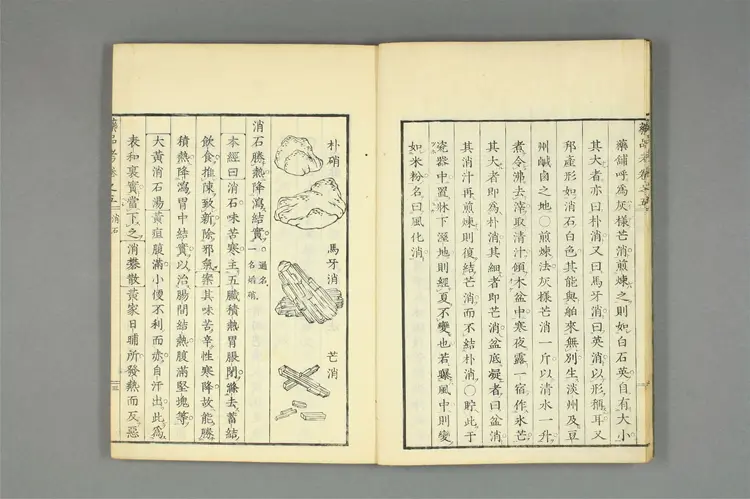 藥舖呼爲灰樣芒消煎煉之則如白石英自有大小
其大者亦曰朴消又曰馬牙消曰英消以形稱耳又
邪產形如消石白色其能與舶來無別生淡州及豆
州鹹卤之地○煎煉法灰樣芒消一斤以清水一升
煮令沸去滓取清汁傾木盆中寒夜露一宿作氷芒
其大者即爲朴消其細者即芒消盆底凝者曰盆消
其消汁再煎煉則復結芒消而不結朴消○貯此于
瓷器中置牀下溼地則經夏不變也若曝風中則變
如米粉名曰風化消
藥品考卷之五
朴硝
馬牙消
芒消
消石勝熱降瀉結實 一通名
一名焔硝
本經曰消石味苦寒主五臟積熱胃脹閉滌去蓄結
飲食推陳致新除邪氣案其味苦辛性寒降故能勝
積熱降瀉胃中結實以治腸間結熱腹滿堅塊等
大黃消石湯黃疸腹滿小便不利而赤自汗出此爲
表和裏實當下之 消礬散黃家日晡所發熱而反惡
藥品考卷之五 消石